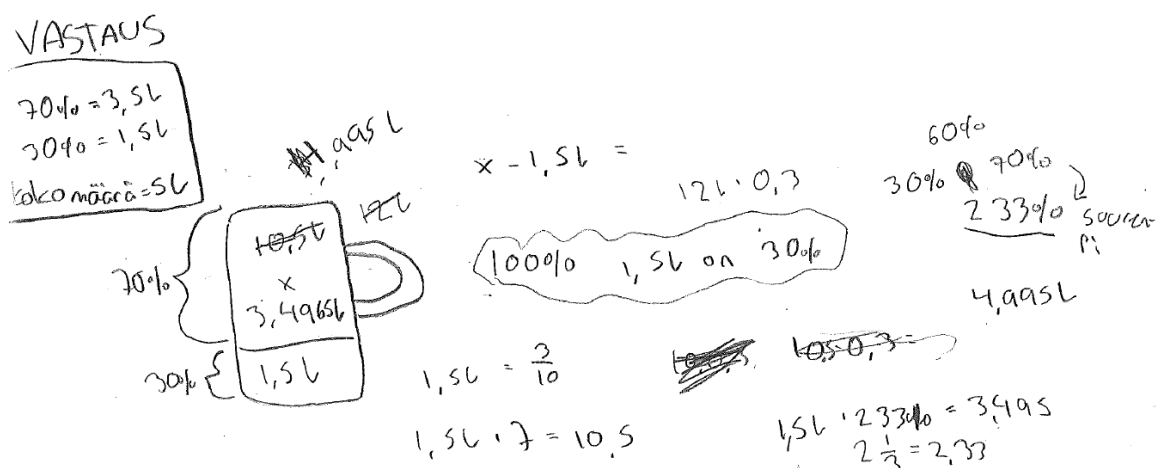 VASTAUS
70% = 3,5L
30% = 1,5L
koko määrä = 5L
,995L
12L
10,5L
x
3,4965L
70%
1,5L
30%
x - 1,5L =
12L · 0,3
100% 1,5L on 30%
1,5L = 3/10
1,5L · 7 = 10,5
60%
30% 70%
233%
4,995L
10,5 · 0,3 =
1,5L · 233% = 3,495
2 1/3 = 2,33